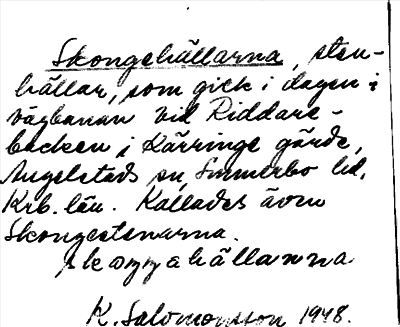 Skongehällarna, sten-
hällar, som gick i dagen i
vägbanan vid Riddare-
backen i Kärringe gärde,
Angelstads sn, Sunnerbo hd,
Krb. län. Kallades även
Skongestenarna.
skoŋŋahällanna
K. Salomonsson 1948.